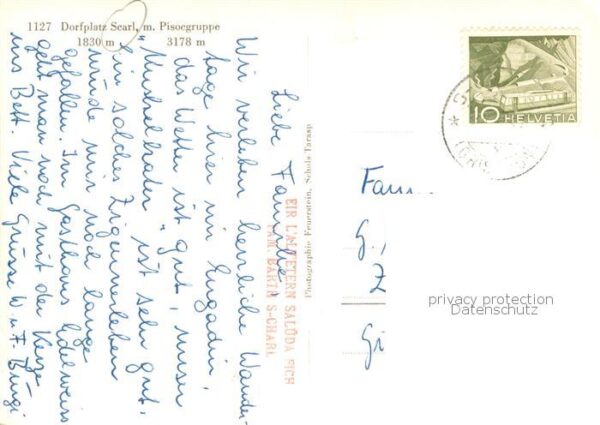 1127 Dorfplatz Scarl, m. Pisocgruppe
1830 m 3178 m
Liebe Familie!
Wir verleben herrliche Wander-
tage hier im Engadin,
das Wetter ist gut, unser
"Muskelkater" ist sehr gut,
ein solches Zigeunerleben
würde mir noch lange
gefallen. Im Gasthaus Edelweiss
geht man noch mit der Kerze
ins Bett. Viele Grüsse W. u. F. Bürgi
Photographie Feuerstein, Schuls-Tarasp
EIR L'ALVETERN SALÜDA SICH
S-CHARL
10 HELVETIA
Fam.
G.,
Z
Gi
privacy protection
Datenschutz